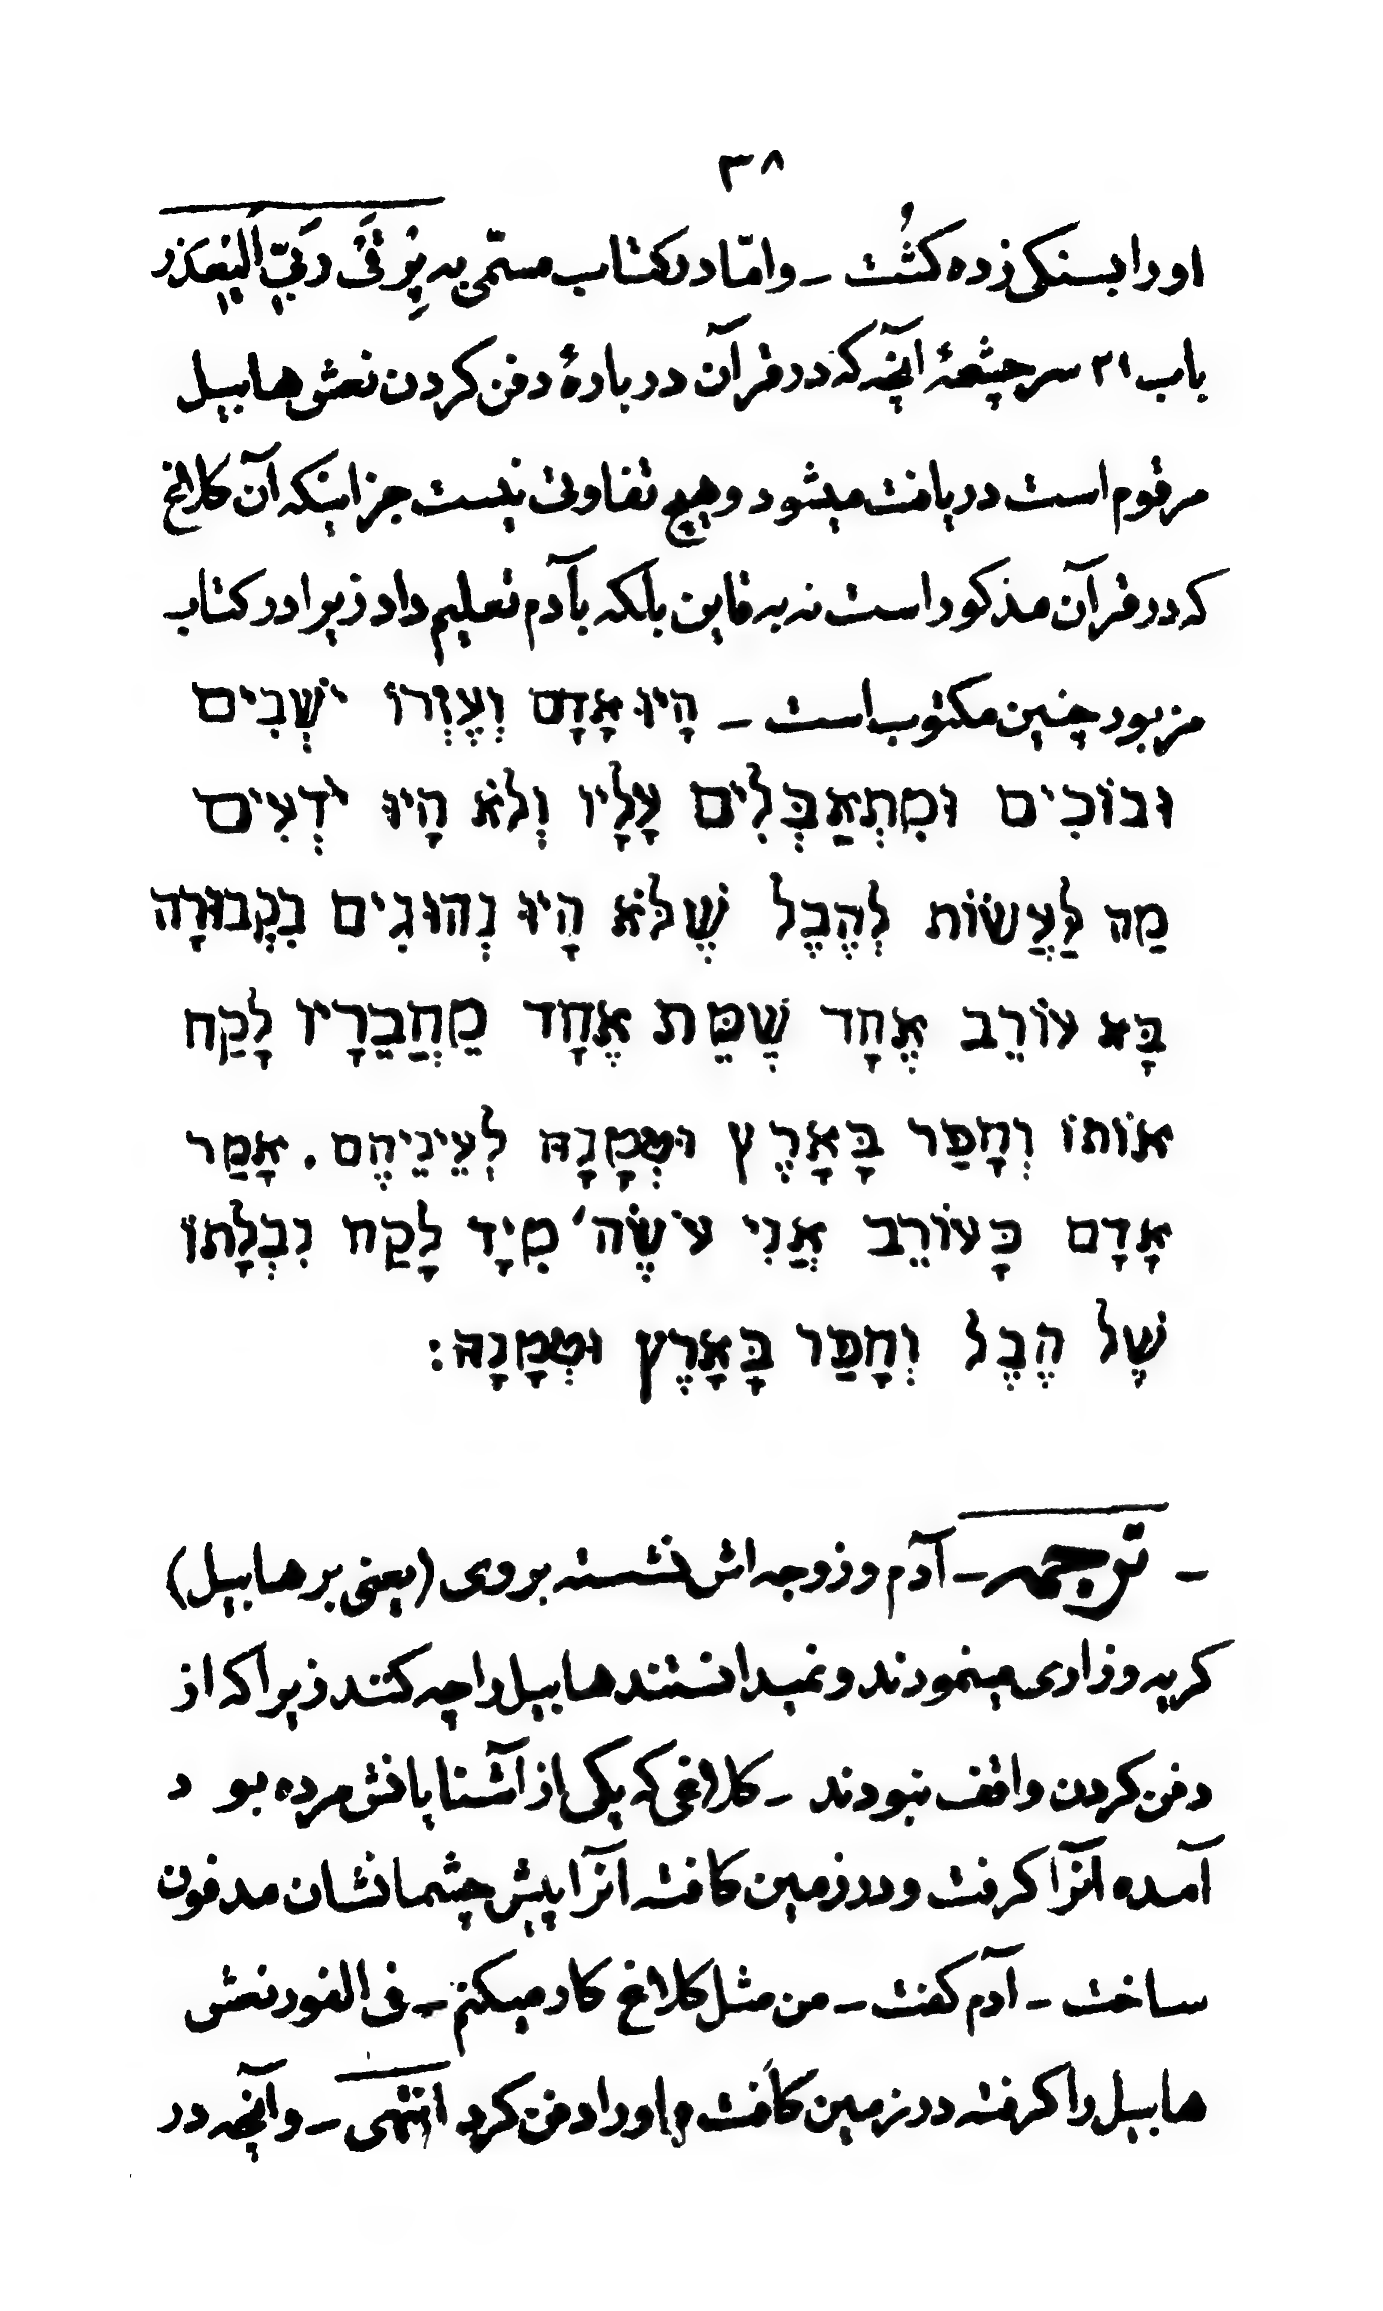 ٣٨
او را بسنکی زده کشُت ـ و امّا در کتاب مسمّی به پِرْقَیْ رَبّیِ اَلیعزَر
باب ٢١ سرچشمهٔ آنچه که در قرآن دربارهٔ دفن کردن نعش هابیل
مرقوم است دریافت میشود و هیچ تفاوتی نیست جز اینکه آن کلاغ
که در قرآن مذکور است نه به قاین بلکه بآدم تعلیم داد زیرا در کتاب
مزبور چنین مکتوب است ـ הָיוּ אָדָם וְעֶזְרוֹ יֹשְׁבִים
וּבוֹכִים וּמִתְאַבְּלִים עָלָיו וְלֹא הָיוּ יֹדְעִים
מַה לַּעֲשׂוֹת לְהֶבֶל שֶׁלֹּא הָיוּ נְהוּגִים בִּקְבוּרָה
בָּא עוֹרֵב אֶחָד שֶׁמֵּת אֶחָד מֵחֲבֵרָיו לָקַח
אוֹתוֹ וְחָפַר בָּאָרֶץ וּטְמָנָהּ לְעֵינֵיהֶם. אָמַר
אָדָם כָּעוֹרֵב אֲנִי עֹשֶׂה' מִיָּד לָקַח נִבְלָתוֹ
שֶׁל הֶבֶל וְחָפַר בָּאָרֶץ וּטְמָנָהּ:
ـ ترجمه ـ آدم و زوجه اش نشسته بر وی (یعنی بر هابیل)
کریه و زاری مینمودند و نمیدانستند هابیل را چه کنند زیرا که از
دفن کردن واقف نبودند ـ کلاغی که یکی از آشنایانش مرده بود
آمده آنرا کرفت و در زمین کافته آنرا پیش چشمانشان مدفون
ساخت ـ آدم کفت ـ من مثل کلاغ کار میکنم ـ فی الفور نعش
هابیل را کرفته در زمین کافت و او را دفن کرد انتهی ـ و آنچه در